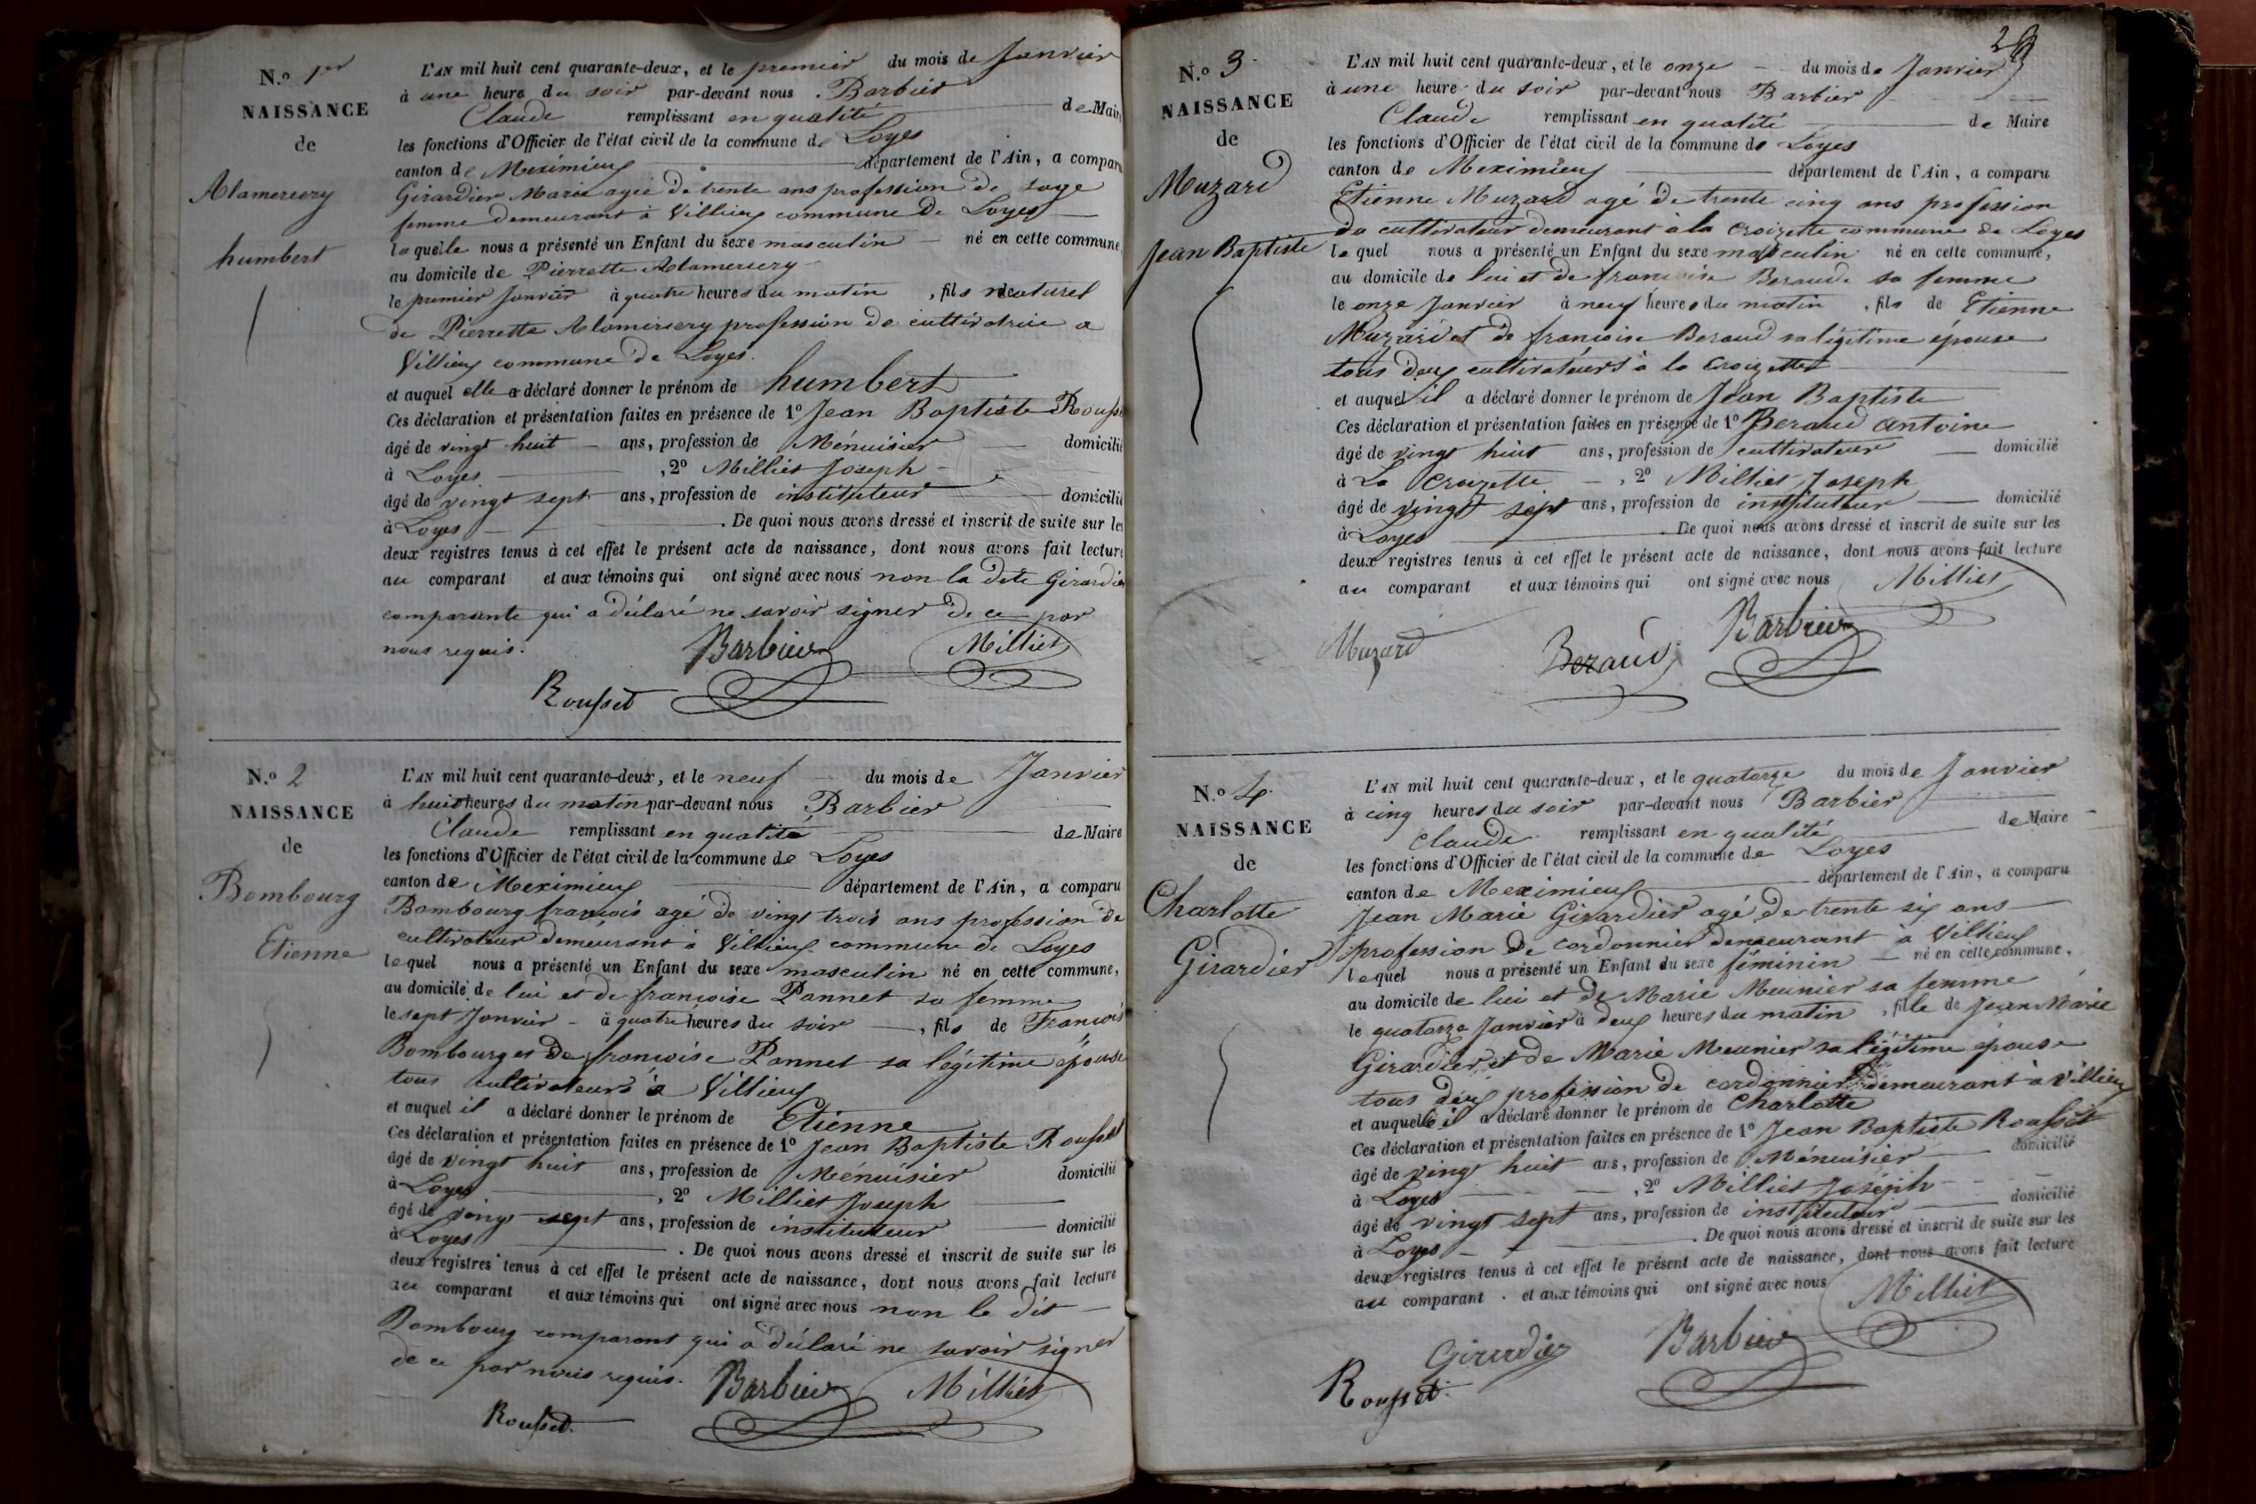 N.º 1er
NAISSANCE
de
Alamercery
humbert
L'AN mil huit cent quarante-deux, et le premier du mois de Janvier
à une heure du soir par-devant nous Barbier
Claude remplissant en qualité de Maire
les fonctions d'Officier de l'état civil de la commune de Loyes
canton de Meximieux département de l'Ain, a comparu
Girardier Marie agée de trente ans profession de sage
femme demeurant à Villieux commune de Loyes
laquelle nous a présenté un Enfant du sexe masculin né en cette commune,
au domicile de Pierrette Alamercery
le premier Janvier à quatre heures du matin, fils naturel
de Pierrette Alamercery profession de cultivatrice a
Villieux commune de Loyes.
et auquel elle a déclaré donner le prénom de humbert
Ces déclaration et présentation faites en présence de 1º Jean Baptiste Rousset
âgé de vingt huit ans, profession de Ménuisier domicilié
à Loyes, 2º Milliet Joseph
âgé de vingt sept ans, profession de instituteur domicilié
à Loyes. De quoi nous avons dressé et inscrit de suite sur les
deux registres tenus à cet effet le présent acte de naissance, dont nous avons fait lecture
au comparant et aux témoins qui ont signé avec nous non la dite Girardier
comparante qui a déclaré ne savoir signer de ce par
nous requis.
Barbier Milliet
Rousset
N.º 2
NAISSANCE
de
Bombourg
Etienne
L'AN mil huit cent quarante-deux, et le neuf du mois de Janvier
à huit heures du matin par-devant nous Barbier
Claude remplissant en qualité de Maire
les fonctions d'Officier de l'état civil de la commune de Loyes
canton de Meximieux département de l'Ain, a comparu
Bombourg françois agé de vingt trois ans profession de
cultivateur demeurant à Villieux commune de Loyes
lequel nous a présenté un Enfant du sexe masculin né en cette commune,
au domicile de lui et de françoise Pannet sa femme
le sept Janvier à quatre heures du soir, fils de François
Bombourg et de françoise Pannet sa légitime épouse
tous cultivateurs à Villieux
et auquel il a déclaré donner le prénom de Etienne
Ces déclaration et présentation faites en présence de 1º Jean Baptiste Rousset
âgé de vingt huit ans, profession de Ménuisier domicilié
à Loyes, 2º Milliet Joseph
âgé de vingt sept ans, profession de instituteur domicilié
à Loyes. De quoi nous avons dressé et inscrit de suite sur les
deux registres tenus à cet effet le présent acte de naissance, dont nous avons fait lecture
au comparant et aux témoins qui ont signé avec nous non le dit
Bombourg comparant qui a déclaré ne savoir signer
de ce par nous requis.
Barbier Milliet
Rousset
N.º 3
NAISSANCE
de
Muzard
Jean Baptiste
L'AN mil huit cent quarante-deux, et le onze du mois de Janvier
à une heure du soir par-devant nous Barbier
Claude remplissant en qualité de Maire
les fonctions d'Officier de l'état civil de la commune de Loyes
canton de Meximieux département de l'Ain, a comparu
Etienne Muzard agé de trente cinq ans profession
de cultivateur demeurant à la Croizette commune de Loyes
lequel nous a présenté un Enfant du sexe masculin né en cette commune,
au domicile de lui et de françoise Beraud sa femme
le onze Janvier à neuf heures du matin, fils de Etienne
Muzard et de françoise Beraud sa légitime épouse
tous deux cultivateurs à la Croizette
et auquel il a déclaré donner le prénom de Jean Baptiste
Ces déclaration et présentation faites en présence de 1º Beraud antoine
âgé de vingt huit ans, profession de cultivateur domicilié
à La Croizette, 2º Milliet Joseph
âgé de vingt sept ans, profession de instituteur domicilié
à Loyes. De quoi nous avons dressé et inscrit de suite sur les
deux registres tenus à cet effet le présent acte de naissance, dont nous avons fait lecture
au comparant et aux témoins qui ont signé avec nous Milliet
Muzard Beraud Barbier
N.º 4
NAISSANCE
de
Charlotte
Girardier
L'AN mil huit cent quarante-deux, et le quatorze du mois de Janvier
à cinq heures du soir par-devant nous Barbier
Claude remplissant en qualité de Maire
les fonctions d'Officier de l'état civil de la commune de Loyes
canton de Meximieux département de l'Ain, a comparu
Jean Marie Girardier agé de trente six ans
profession de cordonnier demeurant à Villieux
lequel nous a présenté un Enfant du sexe féminin né en cette commune,
au domicile de lui et de Marie Meunier sa femme
le quatorze Janvier à deux heures du matin, fille de Jean Marie
Girardier et de Marie Meunier sa légitime épouse
tous deux profession de cordonnier demeurant à Villieux
et auquelle il a déclaré donner le prénom de Charlotte
Ces déclaration et présentation faites en présence de 1º Jean Baptiste Rousset
âgé de vingt huit ans, profession de Ménuisier domicilié
à Loyes, 2º Milliet Joseph
âgé de vingt sept ans, profession de instituteur domicilié
à Loyes. De quoi nous avons dressé et inscrit de suite sur les
deux registres tenus à cet effet le présent acte de naissance, dont nous avons fait lecture
au comparant. et aux témoins qui ont signé avec nous Milliet
Girardier Barbier
Rousset